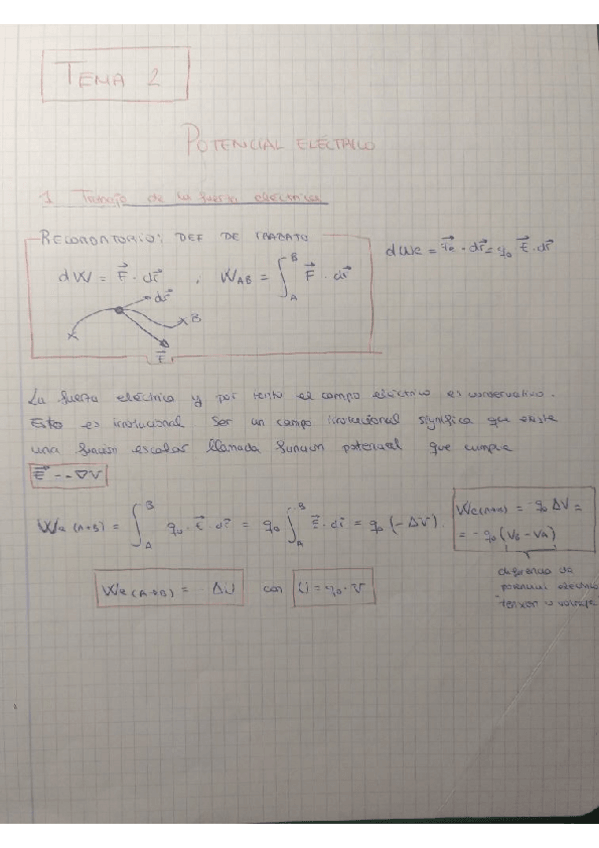 TEMA 2
POTENCIAL ELÉCTRICO
1 Trabajo de la fuerza eléctrica
RECORDATORIO: DEF DE TRABAJO
dW = F⃗ · dr⃗ , W_AB = ∫_A^B F⃗ · dr⃗
dWe = F⃗e · dr⃗ = q₀ E⃗ · dr⃗
dr⃗
B
F⃗
La fuerza eléctrica y por tanto el campo eléctrico es conservativo.
Esto es irrotacional Ser un campo irrotacional significa que existe
una función escalar llamada función potencial que cumple
E⃗ = - ∇V
We (A→B) = ∫_A^B q₀ · E⃗ · dr⃗ = q₀ ∫_A^B E⃗ · dr⃗ = q₀ (-ΔV)
We(A→B) = - q₀ ΔV =
= - q₀ (V_B - V_A)
diferencia de
potencial eléctrico
tensión o voltaje
We (A→B) = - ΔU con U = q₀ · V